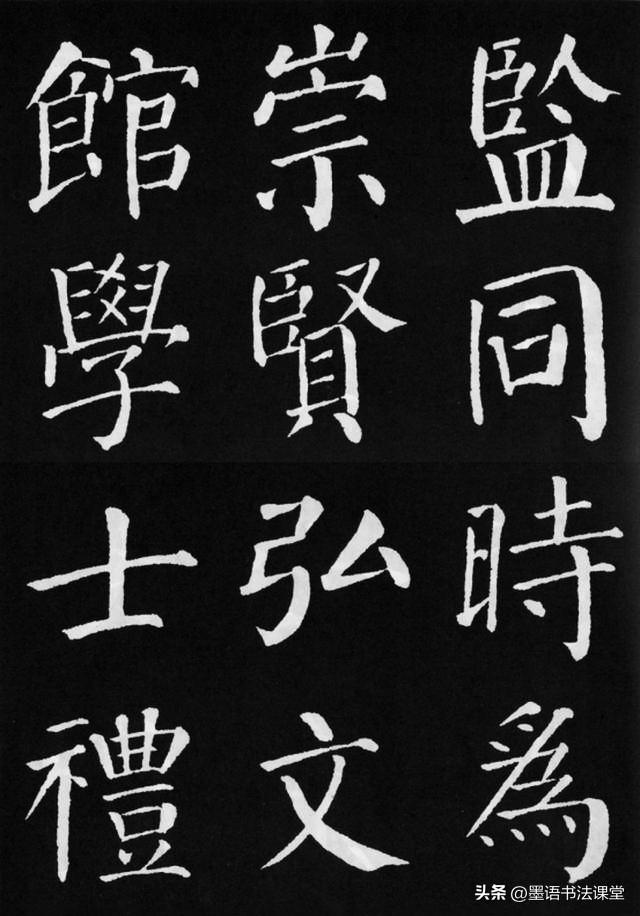 監同時為
崇賢弘文
館學士禮
头条 @墨语书法课堂